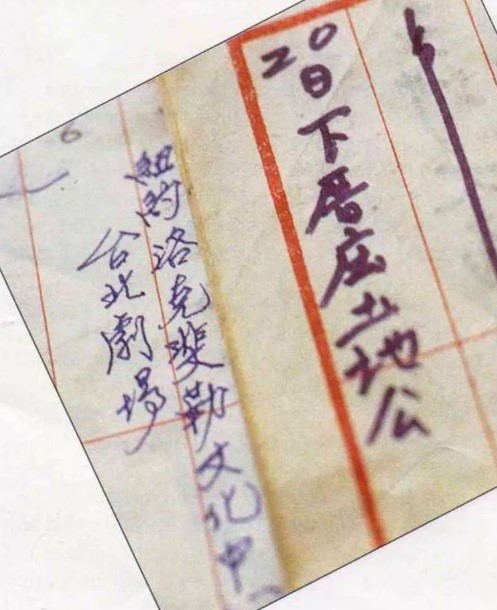 20日下厝庄土地公
紐約洛克斐勒文化中
台北劇場